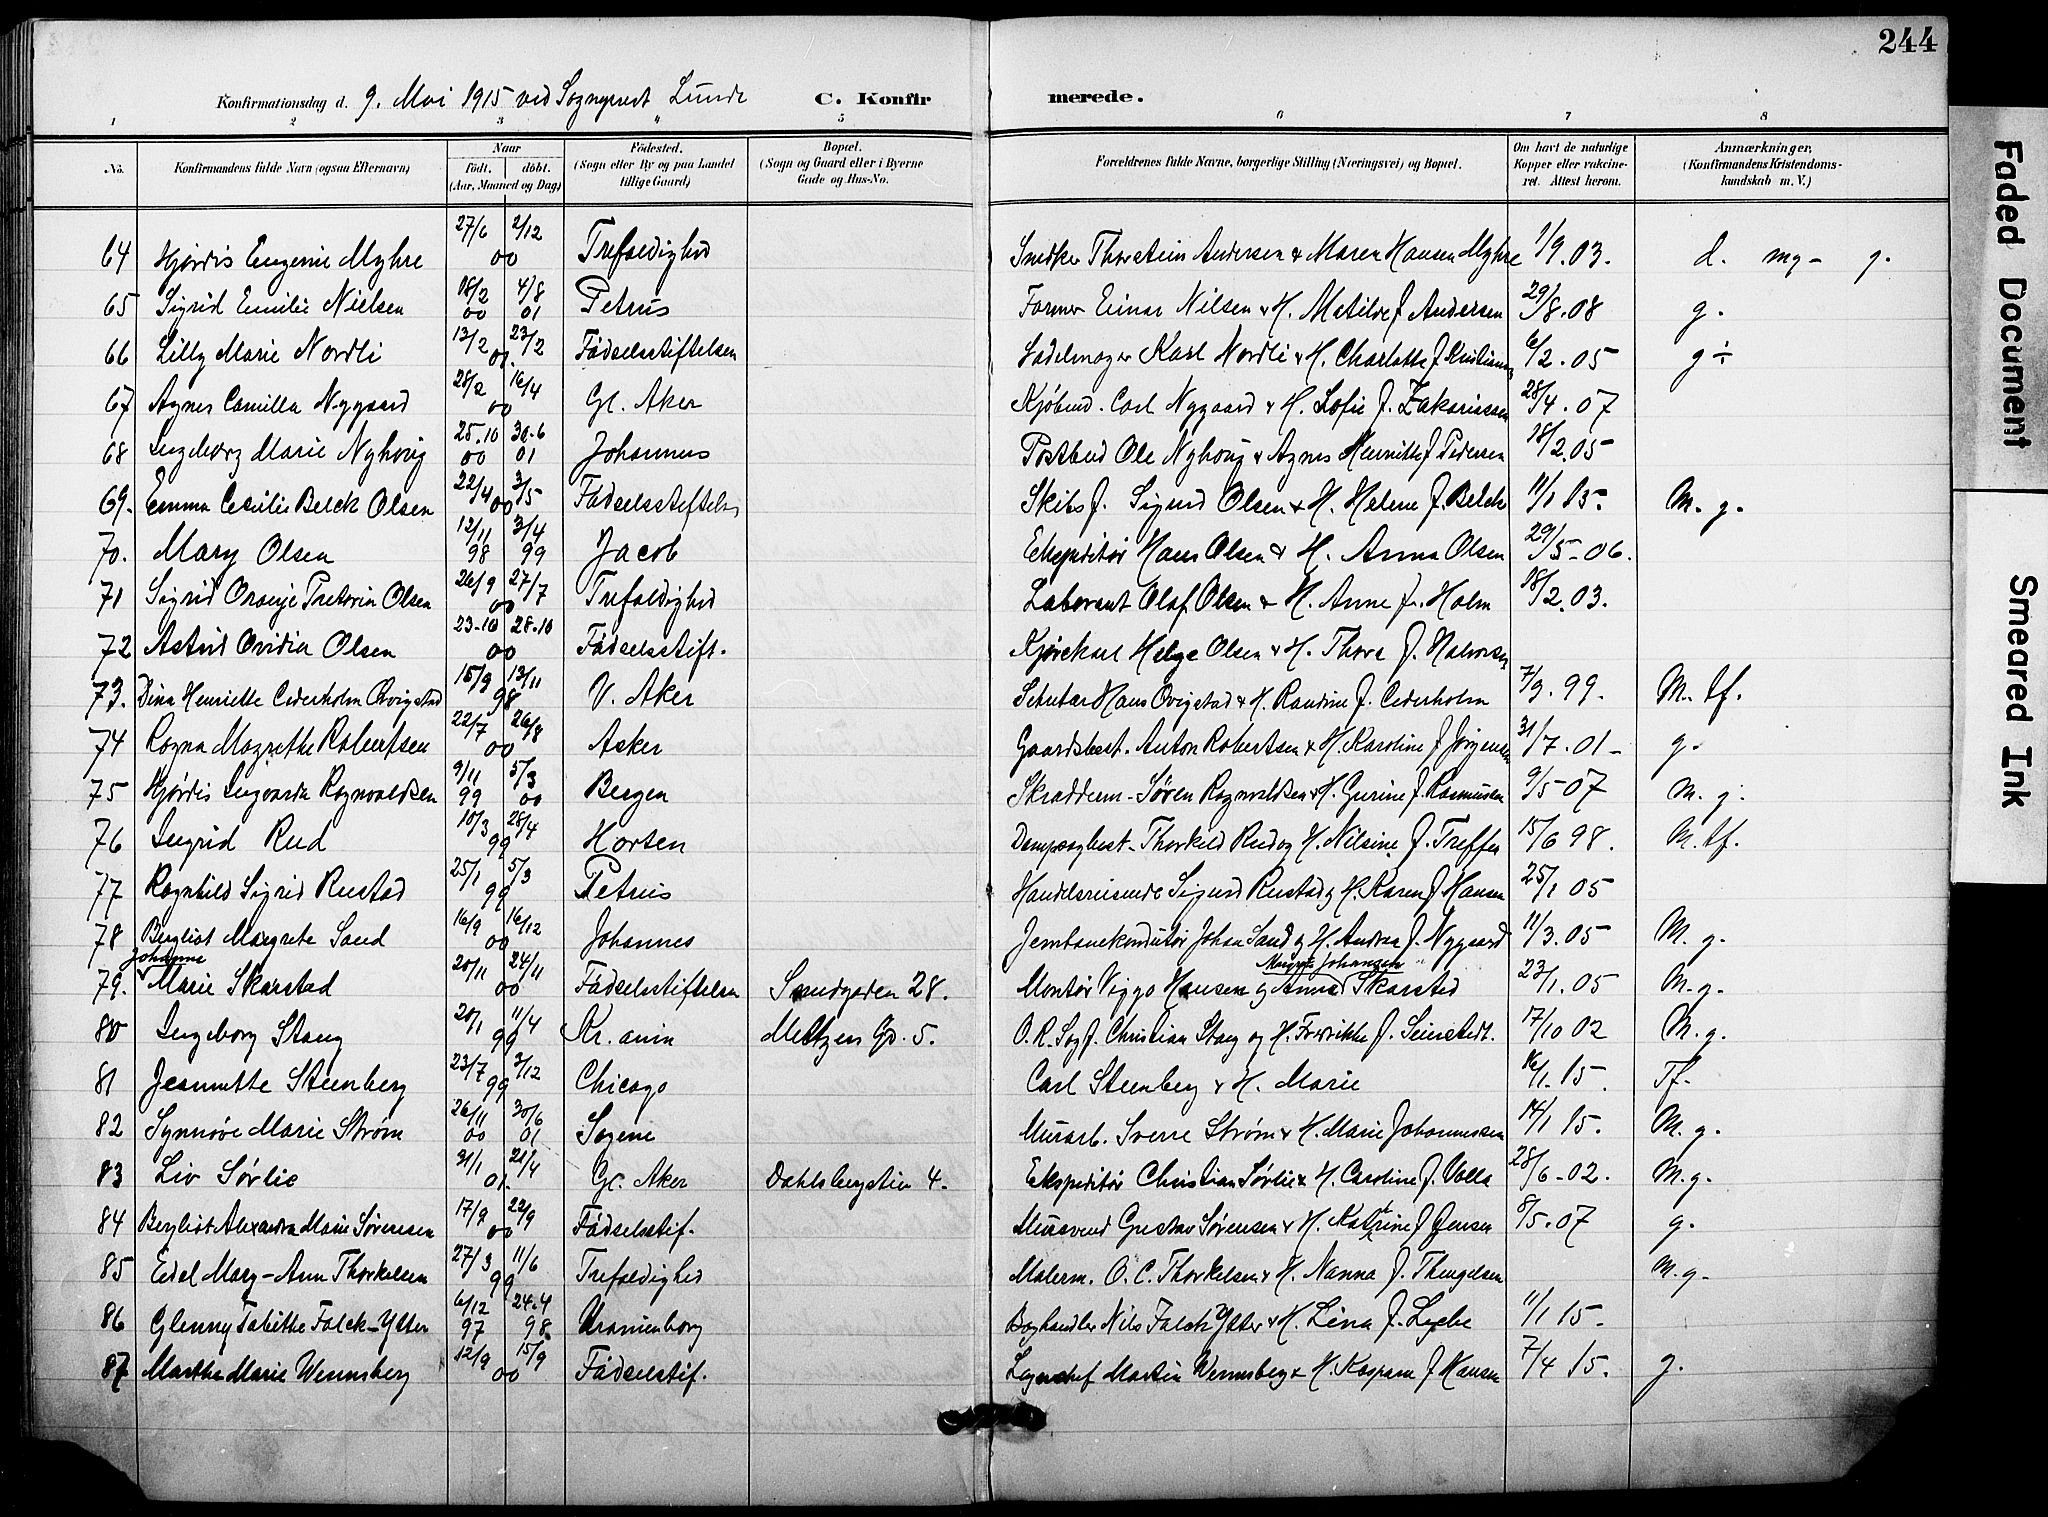 244
Konfirmationsdag d. 9. Mai 1915 ved Sogneprest Lunde C. Konfirmerede.
1 2 3 4 5 6 7 8
No. Konfirmandens fulde Navn (ogsaa Efternavn) Naar født. døbt. (Aar, Maaned og Dag) Födested. (Sogn eller By og paa Landet tillige Gaard) Bopæl. (Sogn og Gaard eller i Byerne Gade og Hus-No. Forældrenes fulde Navne, borgerlige Stilling (Næringsvei) og Bopæl. Om havt de naturlige Kopper eller vakcineret. Attest herom. Anmærkninger, (Konfirmandens Kristendomskundskab m. V.)
64 Hjørdis Eugenie Myhre 27/6 2/12 00 Trefoldighed Snedker Thorstein Andersen & Maren Hansen Myhre 1/9.03. d. mg- g.
65 Sigrid Emilie Nielsen 18/2 00 4/8 01 Petrus Former Einar Nilsen & H. Matilde f Andersen 29/8.08 g.
66 Lilly Marie Nordli 13/2 23/2 01. Fødselsstiftelsen Sadelmager Karl Nordli & H. Charlotte f Kristians 6/2.05 g ÷
67 Agnes Camilla Nygaard 28/2 16/4 00 Gl. Aker Kjøbmd. Carl Nygaard & H. Sofie f. Zakariassen 28/4.07
68 Ingeborg Marie Nyhoug 25.10 00 30.6 01 Johannes Postbud Ole Nyhoug & Agnes Henriette f Pedersen 18/2.05
69. Emma Cecilie Belck Olsen 22/4 3/5 00 Fødselsstiftels Skibsf. Sigurd Olsen & H. Helene f. Belck 11/1 15. M. g.
70. Mary Olsen 12/11 98 3/4 99 Jacob Ekspeditør Hans Olsen & H. Anna Olsen 29/5-06.
71 Sigrid Oranje Pretoria Olsen 26/9 27/7 00 Trefoldighed Laborant Olaf Olsen & H. Anne f. Holm 18/2.03.
72 Astrid Ovidia Olsen 23-10 28.10 00 Fødselsstift. Kjørekarl Helge Olsen & H. Thora f. Halvorsen
73. Dina Henriette Cederholm Qvigstad 15/9 13/11 98 V. Aker Sekretær Hans Qvigstad & H. Randine f. Cederholm 7/9.99. M. tf.
74 Ragna Magrethe Robertsen 22/7 26/8 00 Asker Gaardsbest. Anton Robertsen & H. Karoline f Jørgensen 31/7.01- g.
75 Hjørdis Ingvarda Ragnvaldsen 9/11 99 5/3 00 Bergen Skredderm- Søren Ragnvaldsen & H. Gurine f. Rasmussen 9/5-07 M. g.
76 Ingrid Rud 10/3 28/4 99 Horten Dampsagbest- Thorkild Rud og H. Nilsine f. Treffen 15/6 98. M. tf.
77 Ragnhild Sigrid Rustad 25/1 5/3 99 Petrus Handelsreisende Sigurd Rustad & H. Karen f Hansen 25/1 05
78 Bergliot Margrete Sand 16/9 16/12 00 Johannes Jernbanekonduktør Johan Sand og H. Andrea f. Nygaard 11/3.05 M. g.
79. Johanne Marie Skarstad 20/11 24/11 00 Fødselsstiftelsen Smedgaden 28. Montør Viggo Hansen og Anna Margrete Johansen Skarsted 23/1.05 M.g.
80 Ingeborg Stang 20/1 11/4 99 Kr. ania Meltzers Gd. 5. O.R. Sagf. Christian Stang og H. Fredrikke f. Seinstedt. 17/10 02 M.g.
81 Jeannette Steenberg 23/7 3/12 99 Chicago Carl Steenberg & H. Marie 16/1.15. Tf.
82 Synnøve Marie Strøm 26/11 00 30/6 01 Sagene Murarb. Sverre Strøm & H. Marie Johannessen 14/1 15. M. g.
83 Liv Sørlie 31/1 21/4 01. Gl. Aker Dahlsbergstien 4. Ekspeditør Christian Sørlie & H. Caroline f. Volla 28/6-02. M.g.
84 Bergliot Alexandra Marie Sørensen 17/9 22/9 00 Fødselsstif. Mursvend Gustav Sørensen & H. Katrine f Jensen 8/5.07 g.
85 Edel Mary-Ann Thorkelsen 27/3 11/6 99 Trefoldighed Malerm. O. C. Thorkelsen & H. Nanna f. Thengelsen M.g-
86 Glenny Tabithe Falck-Ytter 6/12 97 24.4 98. Uranienborg Boghandler Nils Falck Ytter & H. Lina f. Lycke 11/1 15-
87 Marthe Marie Wennsberg 12/9 15/9 00 Fødselsstif. Lagerchef Martin Wennsberg & H. Kaspara f Hansen 7/4 15. g.
Faded Document
Smeared Ink